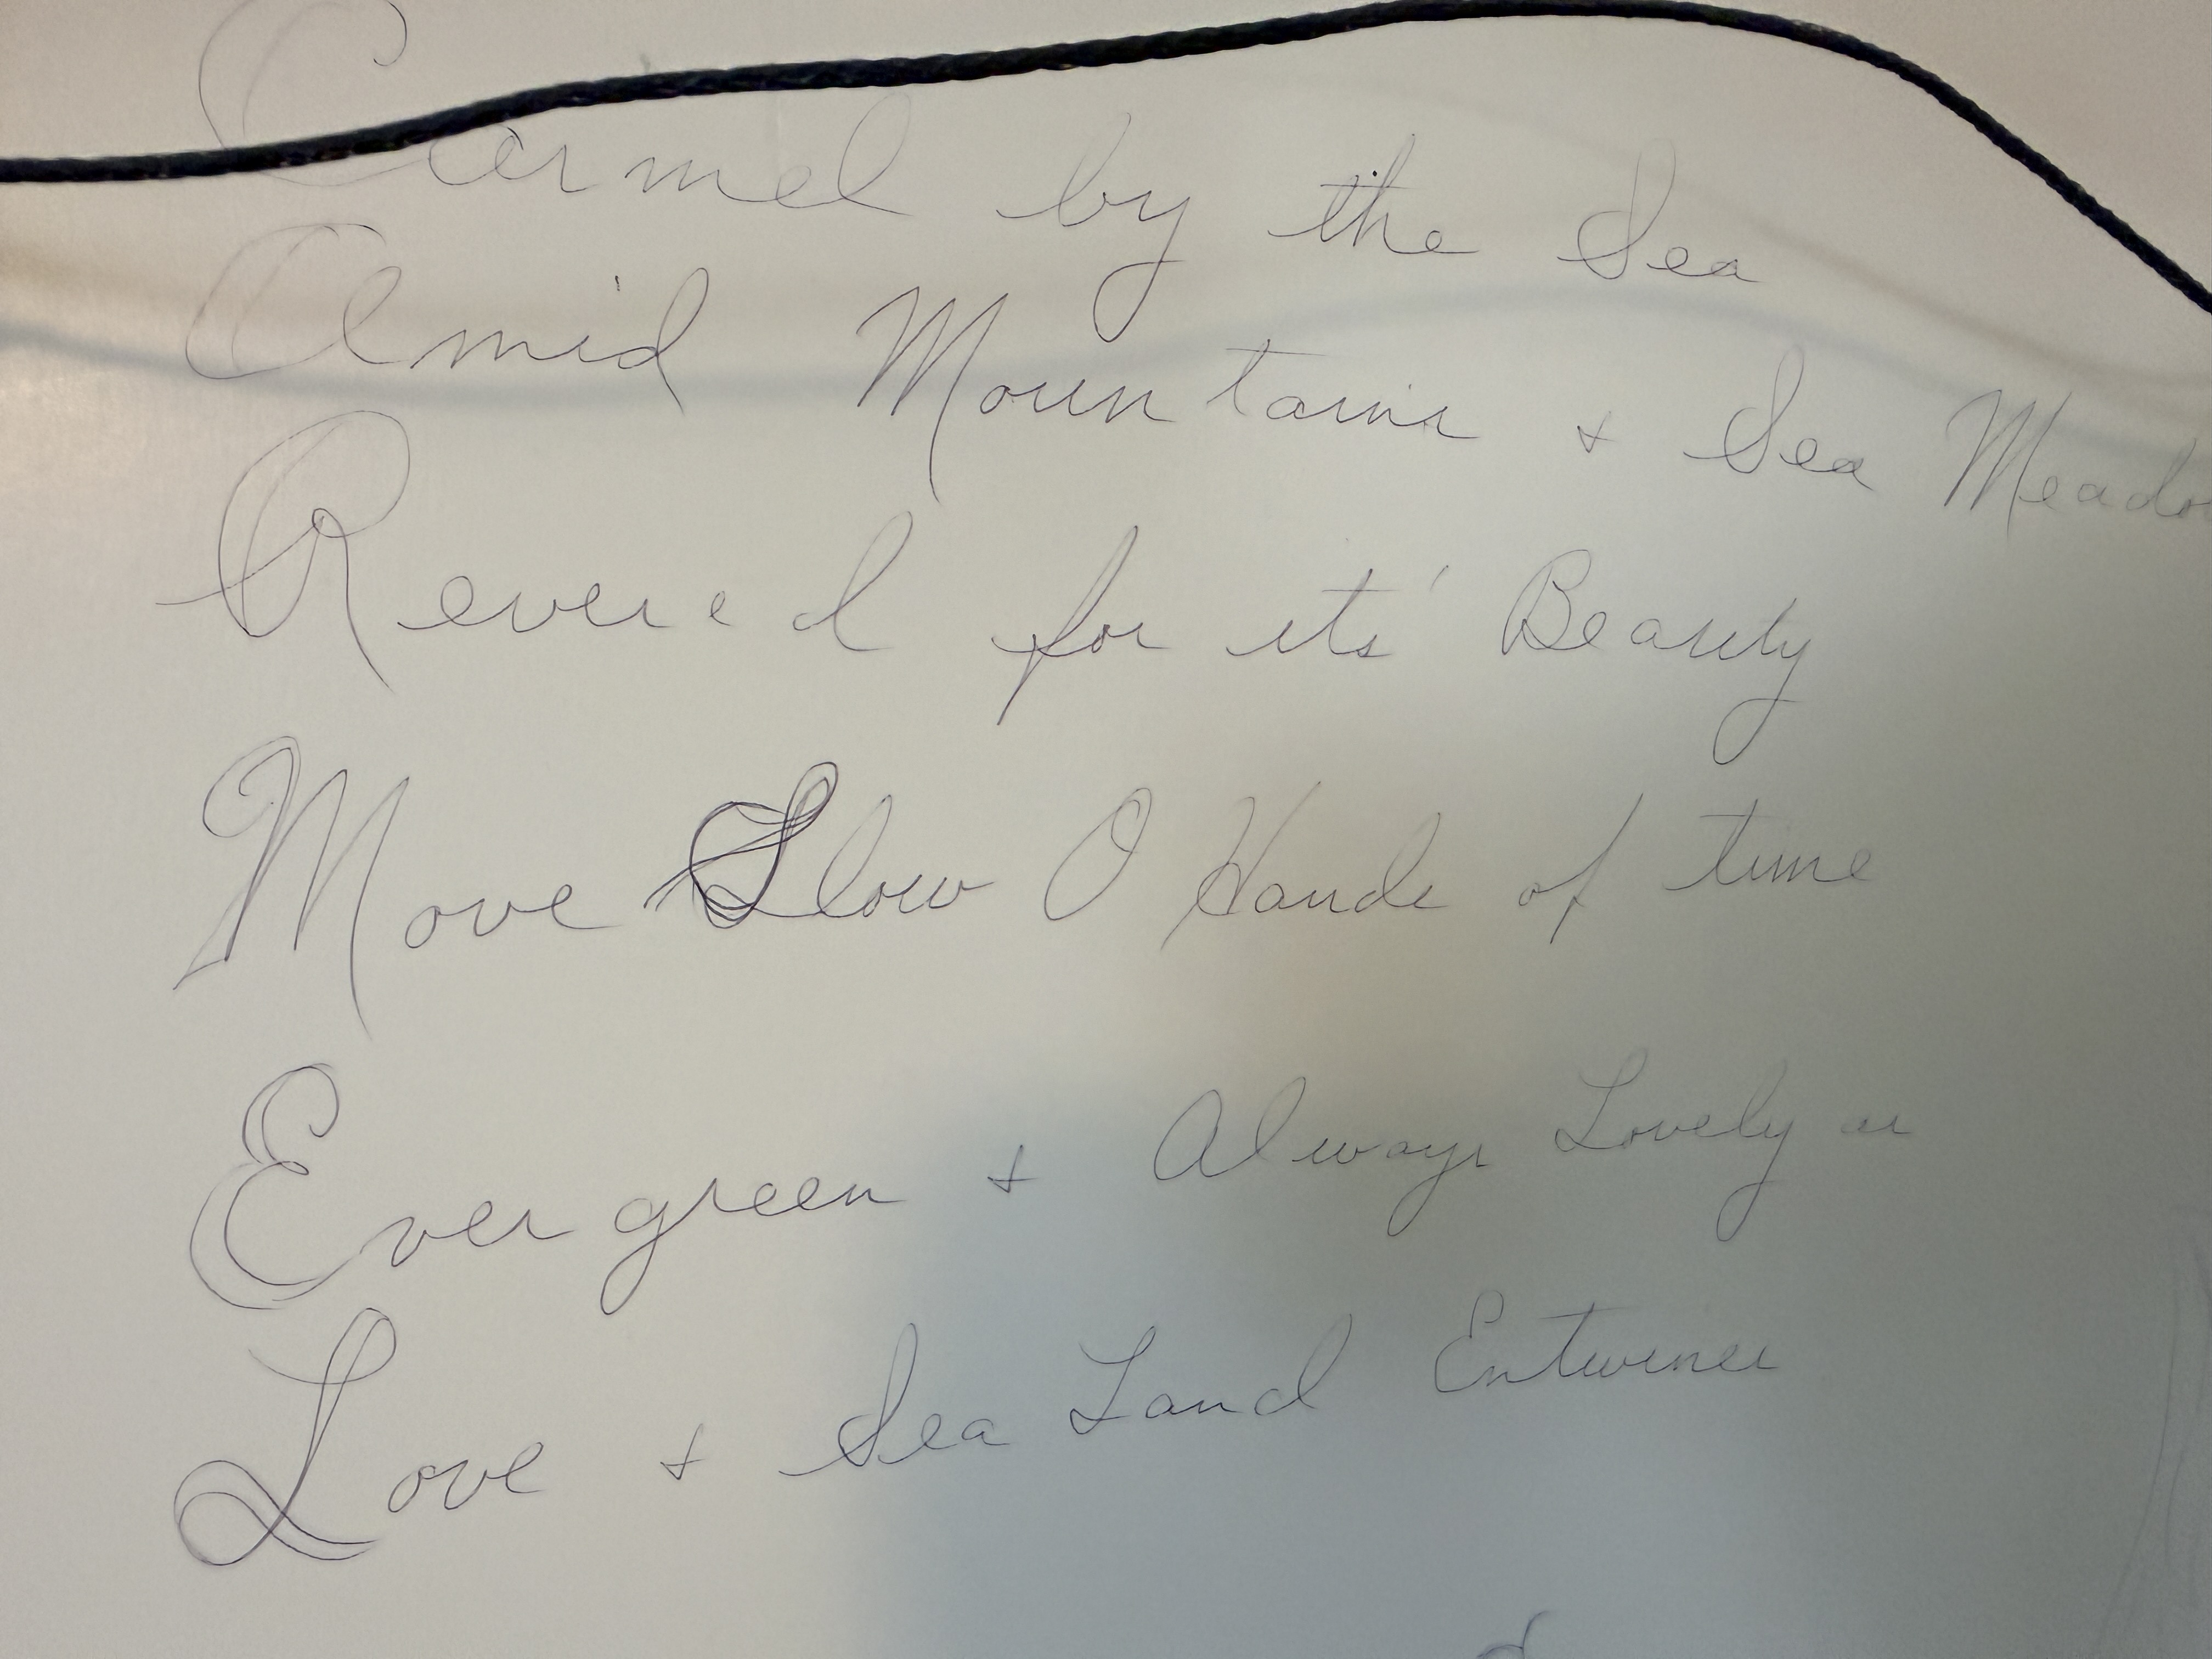 Carmel by the Sea
Amid Mountains + Sea
Revered for its' Beauty
Move Slow O Hands of time
Evergreen + Always Lovely as
Love + Sea Land Entwines